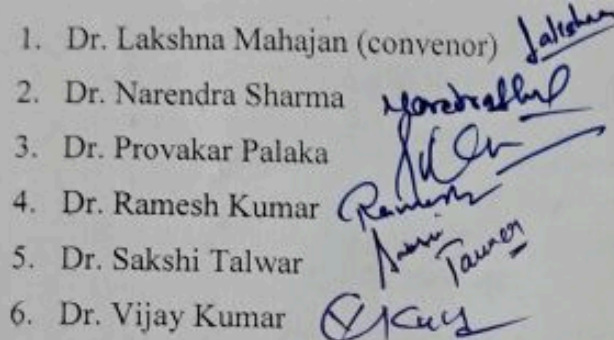 1. Dr. Lakshna Mahajan (convenor) Lakshna
2. Dr. Narendra Sharma
3. Dr. Provakar Palaka
4. Dr. Ramesh Kumar Ramesh
5. Dr. Sakshi Talwar
6. Dr. Vijay Kumar